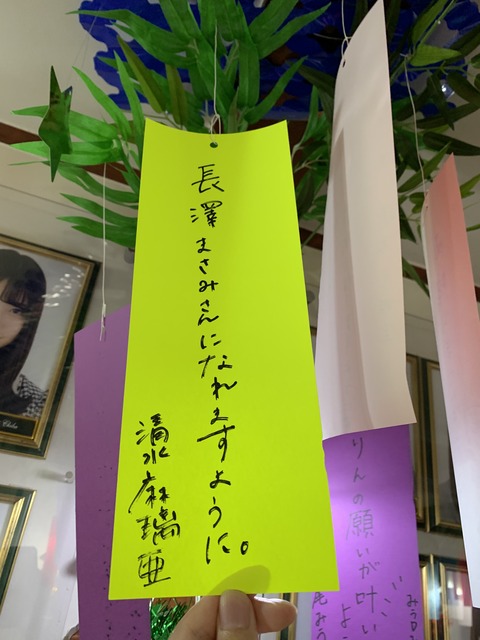 長澤まさみさんになれますように。
清水麻璃亜
りんの願いが叶い
よ